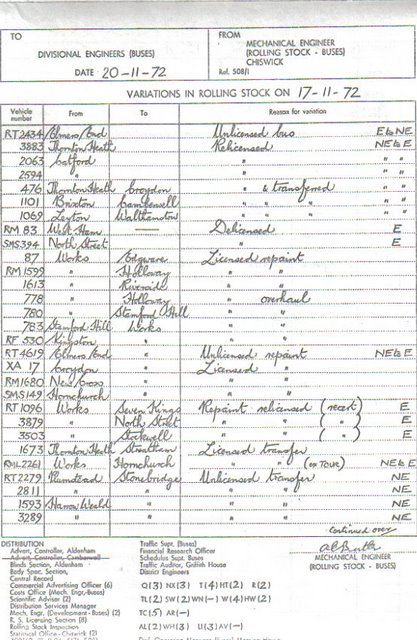 TO
DIVISIONAL ENGINEERS (BUSES)
DATE 20-11-72
FROM
MECHANICAL ENGINEER
(ROLLING STOCK - BUSES)
CHISWICK
Ref. 508/1
VARIATIONS IN ROLLING STOCK ON 17-11-72
Vehicle number From To Reason for variation
RT2434 Elmers End Unlicensed bus E to NE
3883 Thornton Heath Relicensed NE to E
2063 Catford " " "
2594 " " " "
476 Thornton Heath Croydon " & transferred " "
1101 Brixton Camberwell " " " " "
1069 Leyton Walthamstow " " " " "
RM 83 West Ham — Delicensed E
SMS394 North Street " E
87 Works Edgware Licensed repaint
RM1599 " Holloway " "
1613 " Riverside " "
778 " Holloway " overhaul
780 " Stamford Hill " "
783 Stamford Hill Works " "
RF 530 Kingston " " "
RT4619 Elmers End " Unlicensed repaint NE to E
XA 17 Croydon " Licensed "
RM1680 New Cross " " "
SMS149 Hornchurch " " "
RT1096 Works Seven Kings Repaint relicensed (recert) E
3879 " North Street " " ( " ) E
3503 " Stockwell " " ( " ) E
1673 Thornton Heath Streatham Licensed transfer
RML2261 Works Hornchurch " " (on TOUR) E
RT2279 Plumstead Stonebridge Unlicensed transfer NE
2811 " " " " NE
1593 Harrow Weald " " " NE
3289 " " " " NE
Continued over
DISTRIBUTION
Advert, Controller, Aldenham
Advert, Controller, Camberwell
Blinds Section, Aldenham
Body Spec. Section,
Central Record
Commercial Advertising Officer (6)
Costs Office (Mech. Engr.-Buses)
Scientific Adviser (2)
Distribution Services Manager
Mech, Engr, (Development - Buses) (2)
R. S. Licensing Section (8)
Rolling Stock Inspection
Statistical Office - Chiswick (2)
Traffic Supt. (Buses)
Financial Research Officer
Schedules Supt. Buses
Traffic Auditor, Griffith House
District Engineers
Q(3) NX(3) T(4) HT(2) R(2)
TL(2) SW(2) WN(-) W(4) HW(2)
TC(5) AR(-)
AL(2) WH(3) U(3) AV(-)
MECHANICAL ENGINEER
(ROLLING STOCK - BUSES)